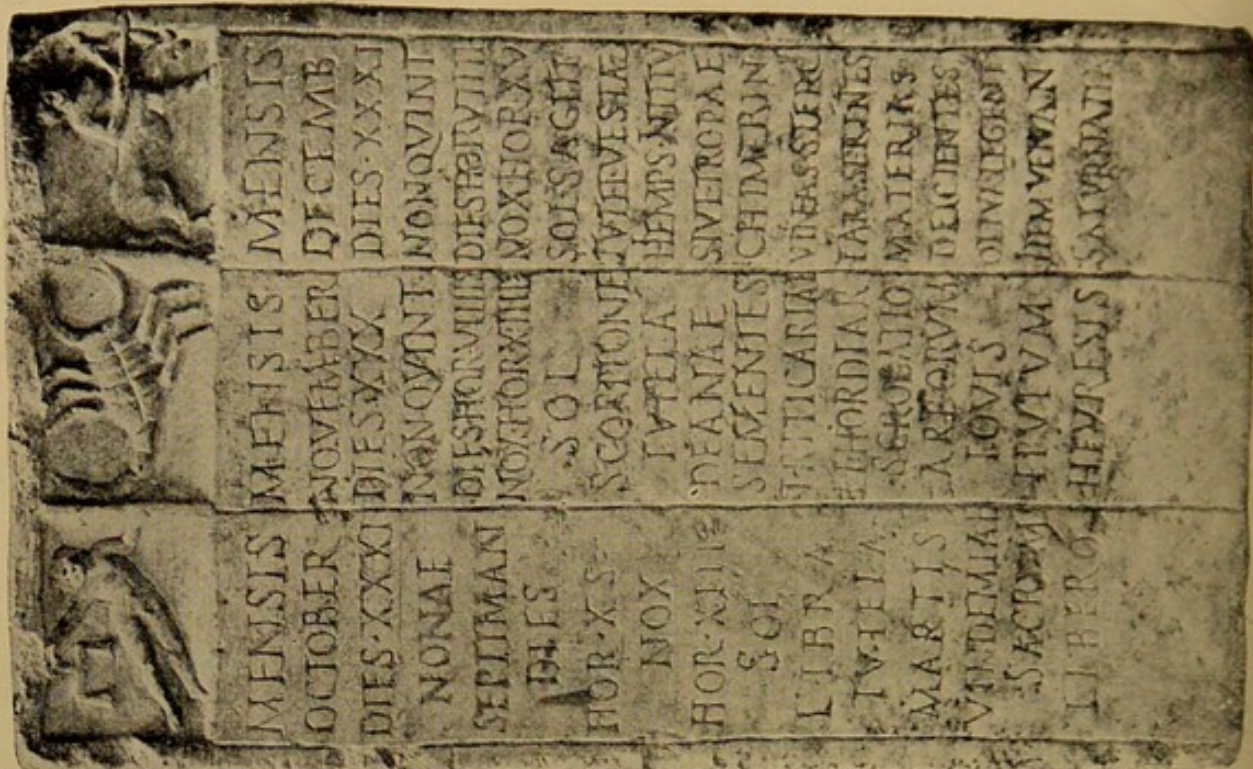 MENSIS
OCTOBER
DIES·XXXI
NONAE
SEPTIMANI
DIES
HOR·X S
NOX
HOR·XIII
SOL
LIBRA
TVTELA
MARTIS
VINDEMIAE
SACRVM
LIBERO
MENSIS
NOVEMBER
DIES·XXX
NON QVINT
DIES HOR VIIIIS
NOX HOR XIIIIS
SOL
SCORPIONE
TVTELA
DEANAE
SEMENTES
TRITICARIAE
ET HORDIAR
SCROBATIO
ARBORVM
IOVIS
EPVLVM
HEVRESIS
MENSIS
DECEMB
DIES·XXXI
NON QVINT
DIES HOR VIIII
NOX HOR XV
SOL SAGIT
TVTEL VESTAE
HIEMPS·INITIV
SIVE TROPAE
CHIMERIN
VINEAS STERC
FABA SERENTES
MATERIAS
DEICIENTES
OLIVA LEGENT
ITEM VENAN
SATVRNALIA